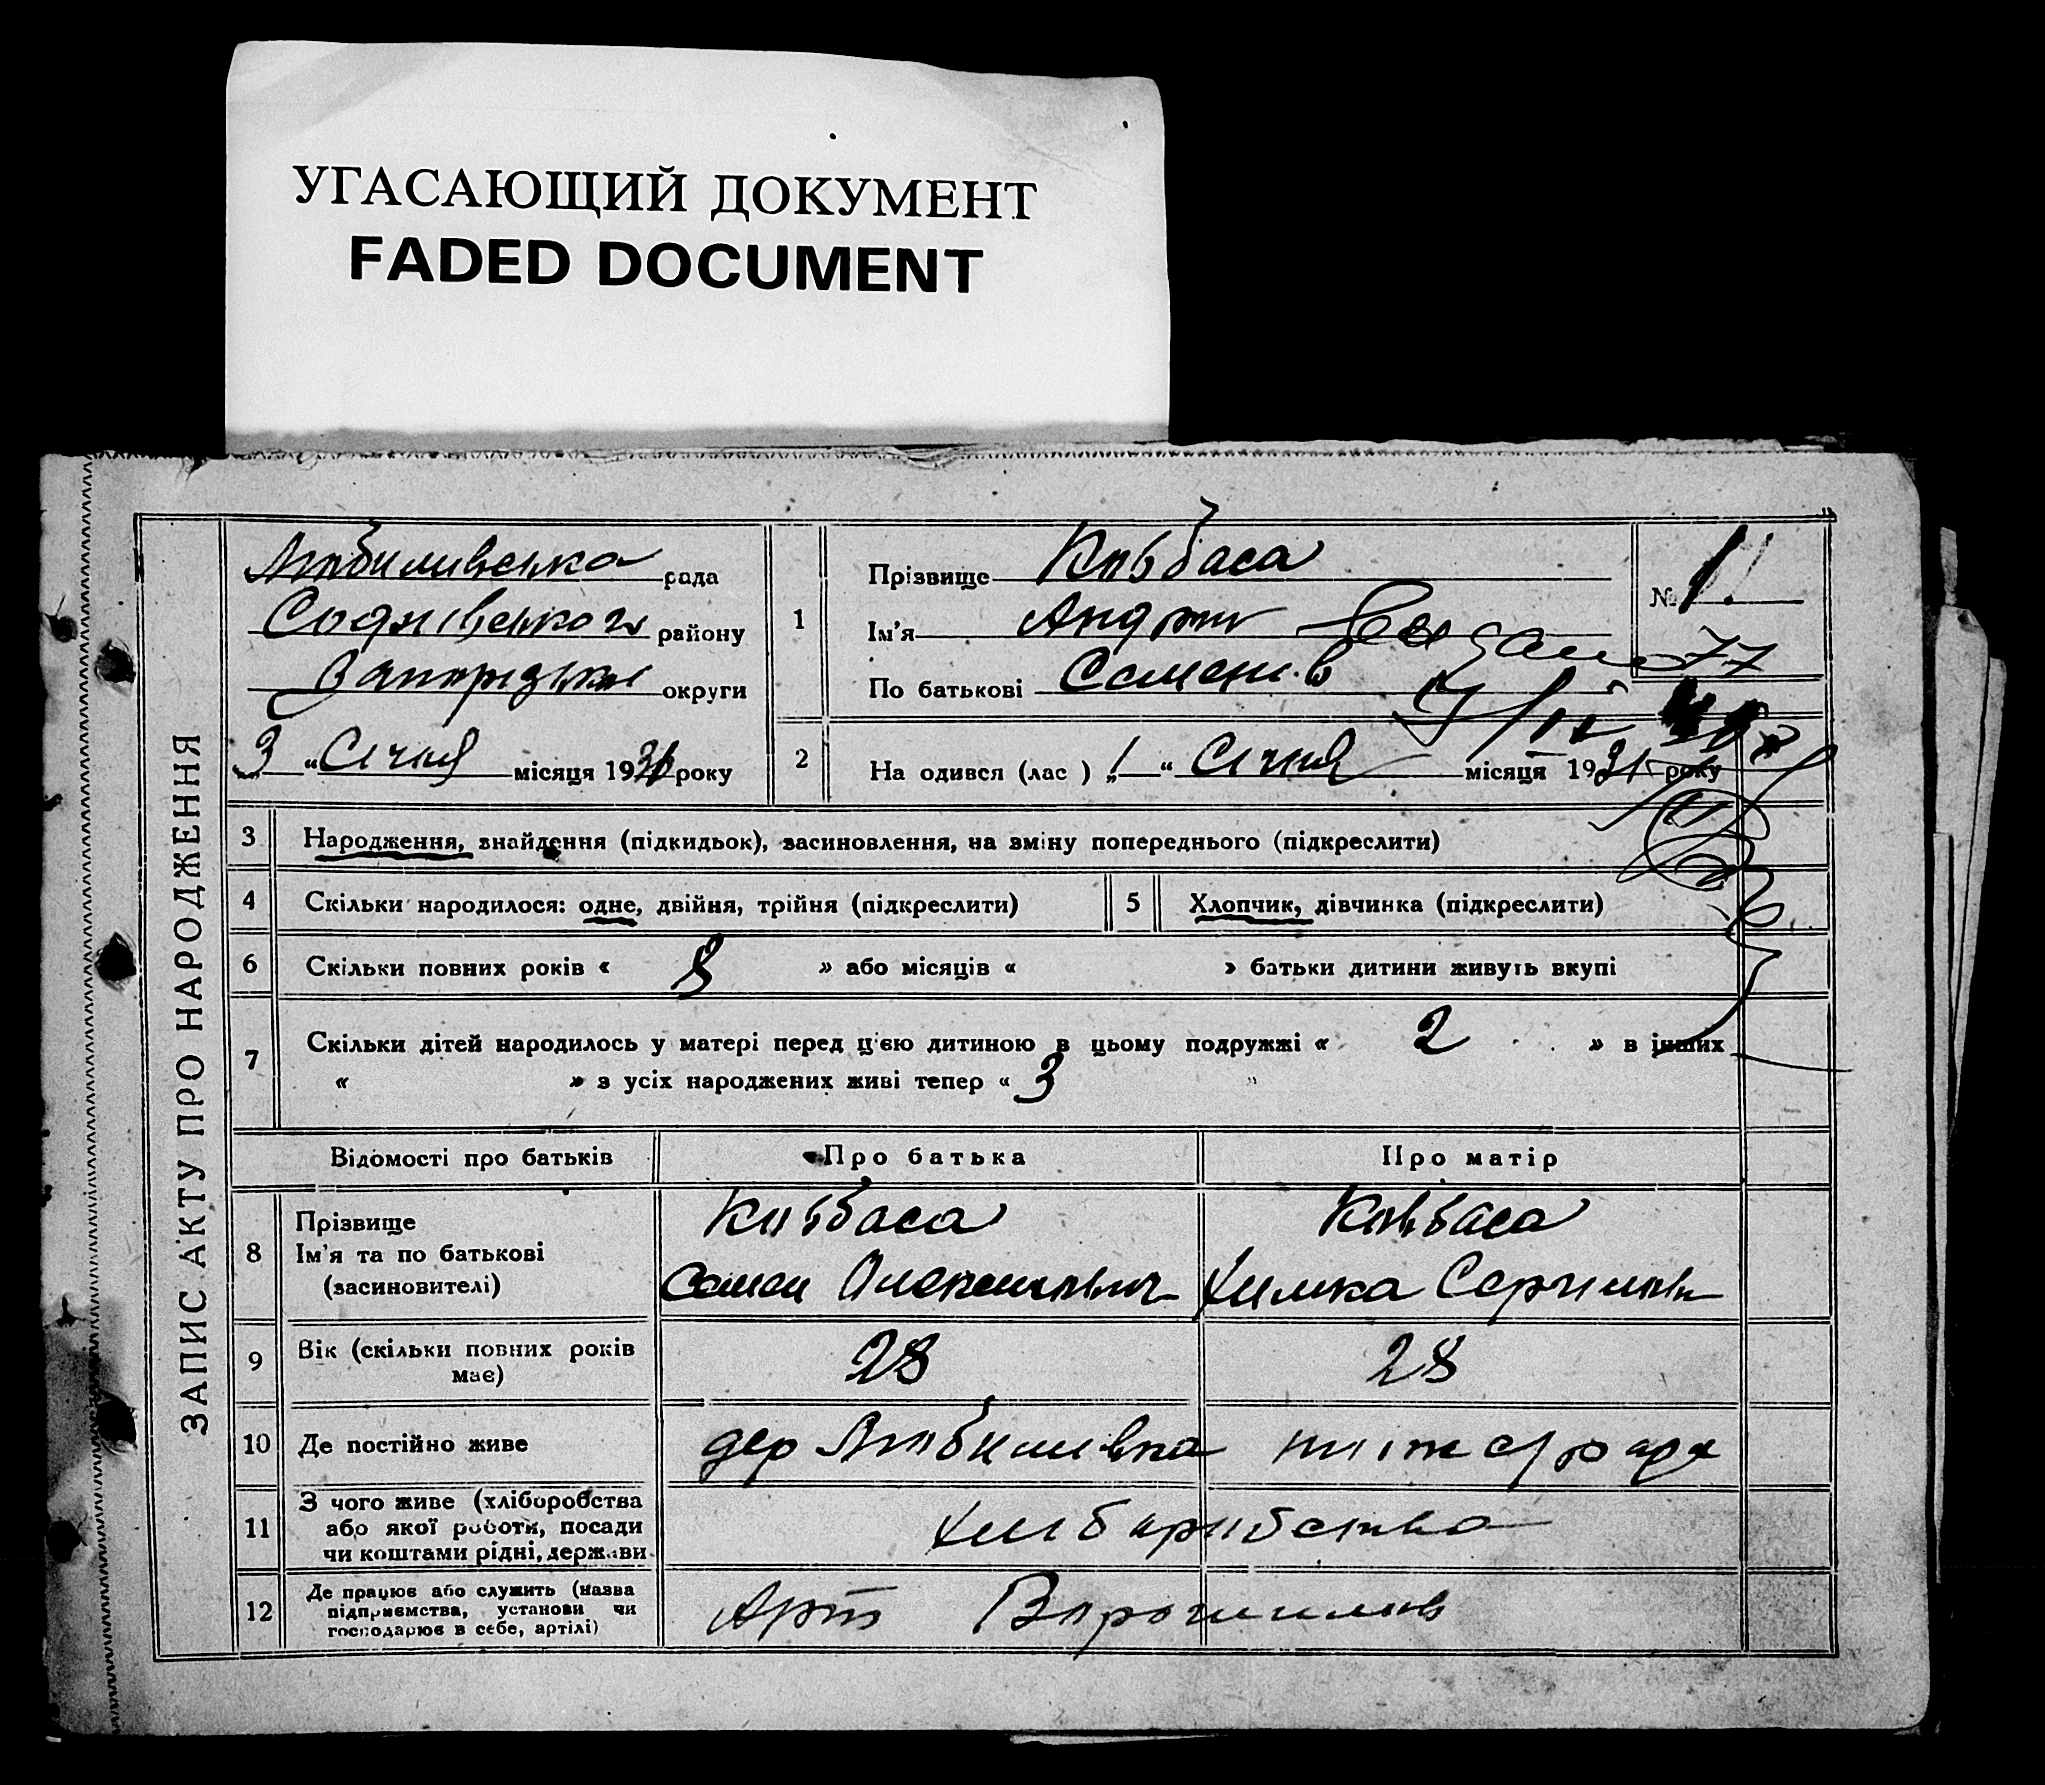 УГАСАЮЩИЙ ДОКУМЕНТ
FADED DOCUMENT
ЗАПИС АКТУ ПРО НАРОДЖЕННЯ
Любимівська рада
району
округи
3 „ Січня місяця 1931 року
1
Прізвище Ковбаса
Ім'я Андрій
По батькові Семенів
№ 1
77
2
На одився (лас ) „ 1 “ Січня місяця 1931 року
3 Народження, знайдення (підкидьок), засиновлення, на зміну попереднього (підкреслити)
4 Скільки народилося: одне, двійня, трійня (підкреслити)
5 Хлопчик, дівчинка (підкреслити)
6 Скільки повних років « 8 » або місяців « » батьки дитини живуть вкупі
7 Скільки дітей народилось у матері перед ц'єю дитиною в цьому подружжі « 2 » в інших
« » з усіх народжених живі тепер « 3 "
Відомості про батьків Про батька Про матір
8 Прізвище Ковбаса Ковбаса
Ім'я та по батькові
(засиновителі) Семен Химка
9 Вік (скільки повних років 28 28
має)
10 Де постійно живе дер Любимівка
11 З чого живе (хліборобства
або якої роботи, посади
чи коштами рідні, держави
12 Де працює або служить (назва
підприємства, установи чи
господарює в себе, артілі) Арт Ворошилов